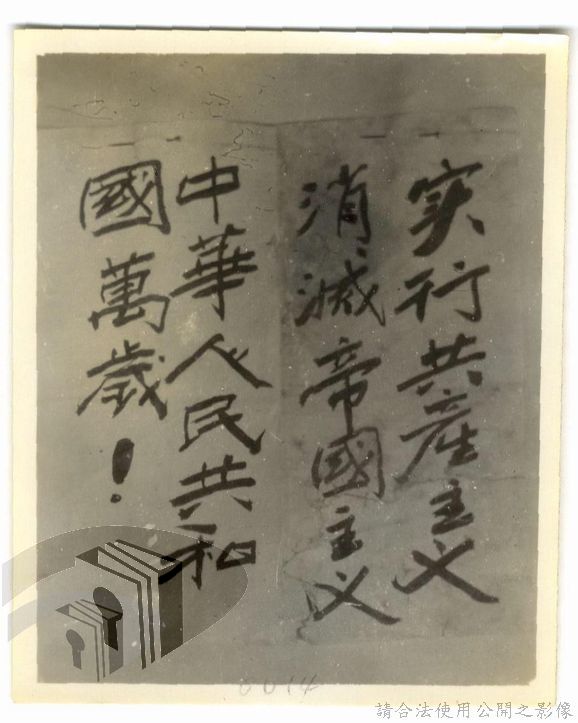 实行共產主义
消滅帝國主义
中華人民共和
國萬歲！
0014
請合法使用公開之影像